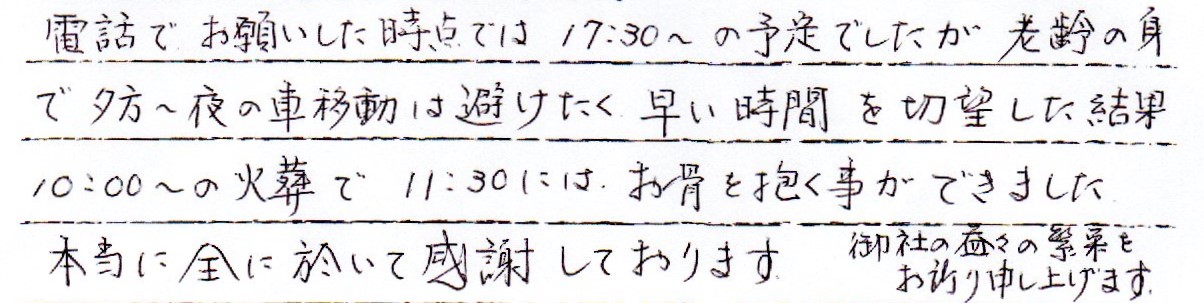 電話でお願いした時点では 17:30〜の予定でしたが 老齢の身
で夕方〜夜の車移動は避けたく 早い時間を切望した結果
10:00〜の火葬で 11:30には お骨を抱く事ができました
本当に全に於いて感謝しております
御社の益々の繁栄を
お祈り申し上げます。